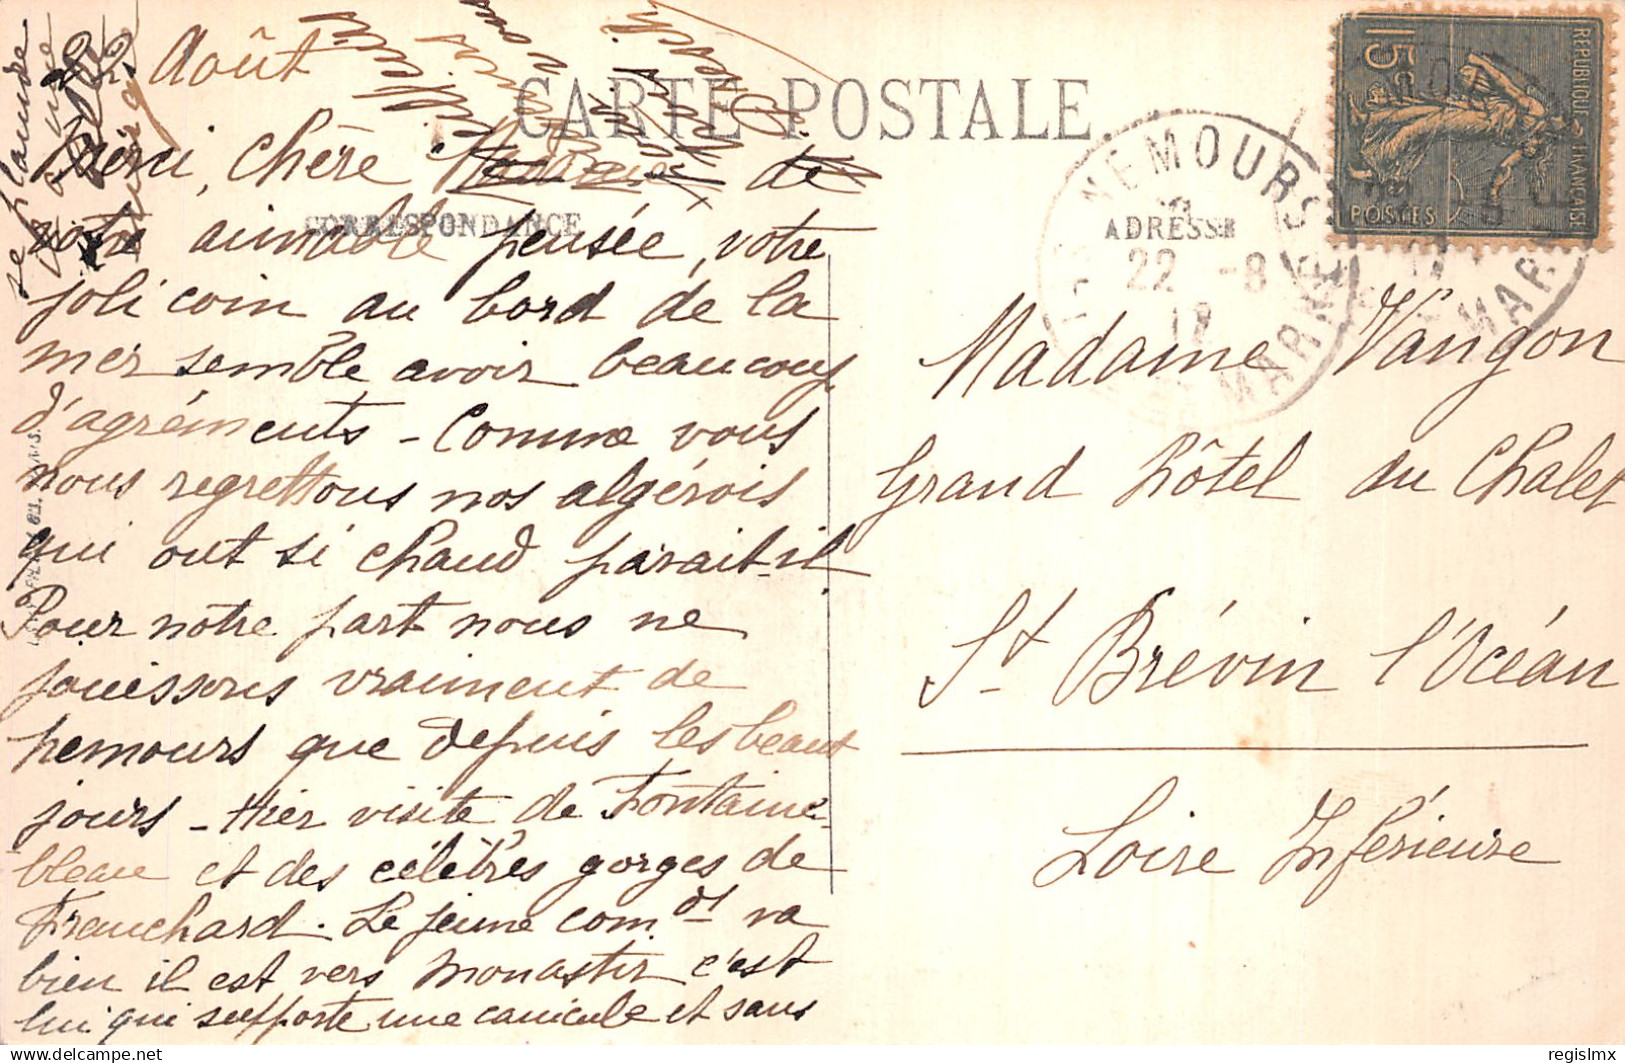 Août
CARTE POSTALE
CORRESPONDANCE
ADRESSE
Merci, chère
votre aimable pensée, votre
joli coin au bord de la
mer semble avoir beaucoup
d'agréments - Comme vous
nous regrettons nos algérois
qui ont si chaud parait-il
Pour notre part nous ne
jouissons vraiment de
nemours que depuis les beaux
jours - Hier visite de Fontaine-
bleau et des célèbres gorges de
Franchard. Le jeune comdt va
bien il est vers monastir c'est
lui qui supporte une canicule et sans
se plaindre
Madame Vangon
Grand Hôtel du Chalet
St Brévin l'Océan
Loire Inférieure
NEMOURS
22 -8
MARNE
REPUBLIQUE FRANÇAISE
15c
POSTES
regislmx
delcampe.net